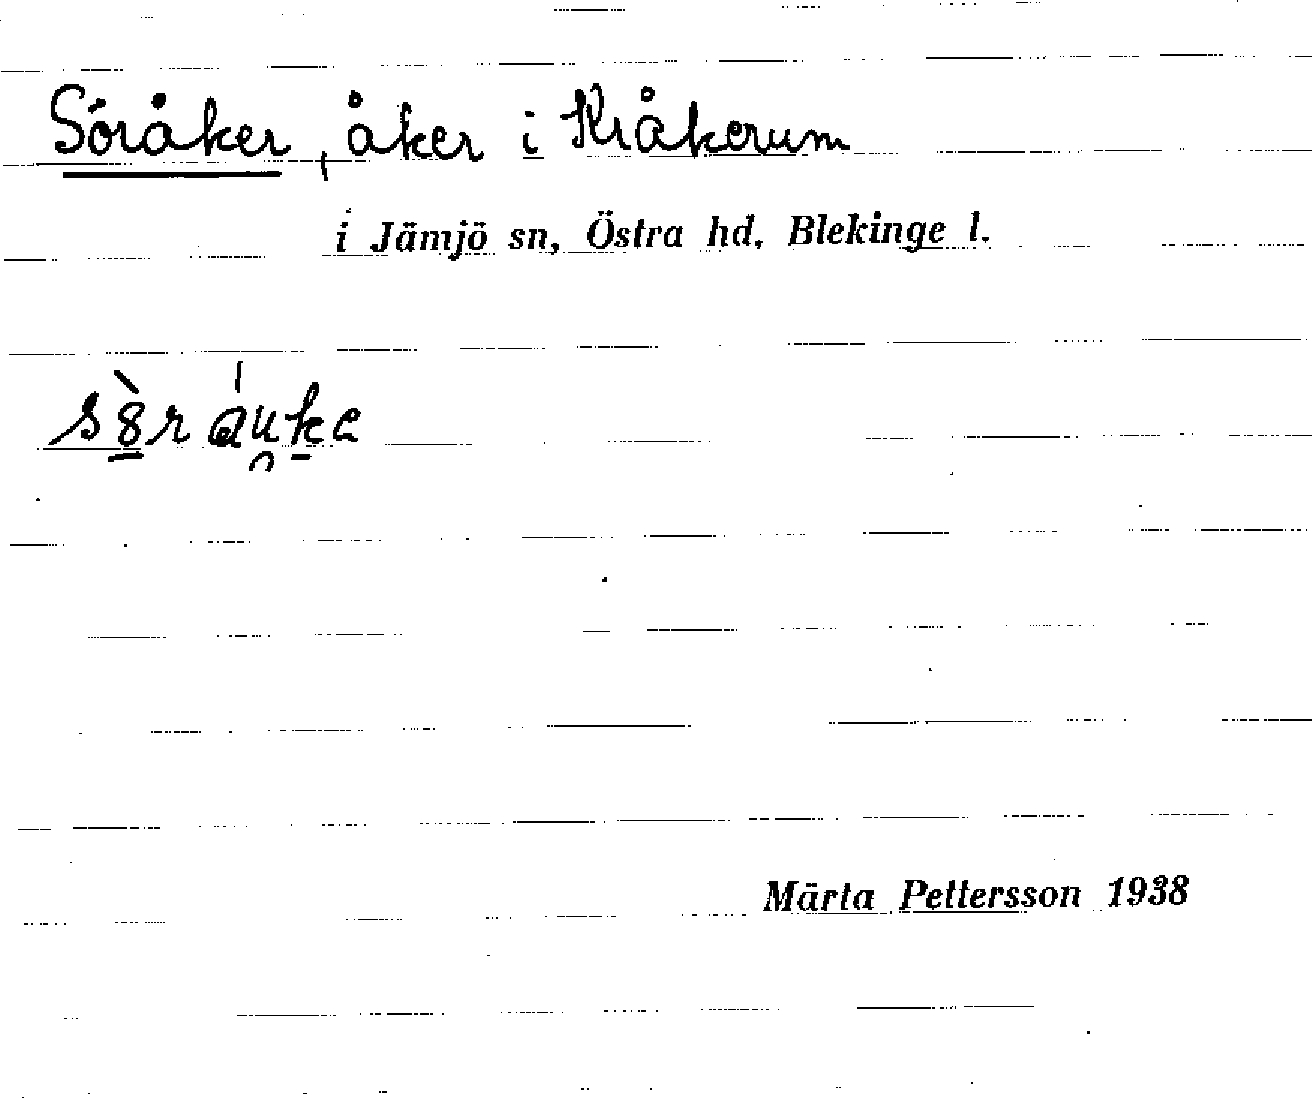 Söråker, åker i Kråkerum
i Jämjö sn, Östra hd, Blekinge l.
s8̱̀r áu̯ḵe
Märta Pettersson 1938